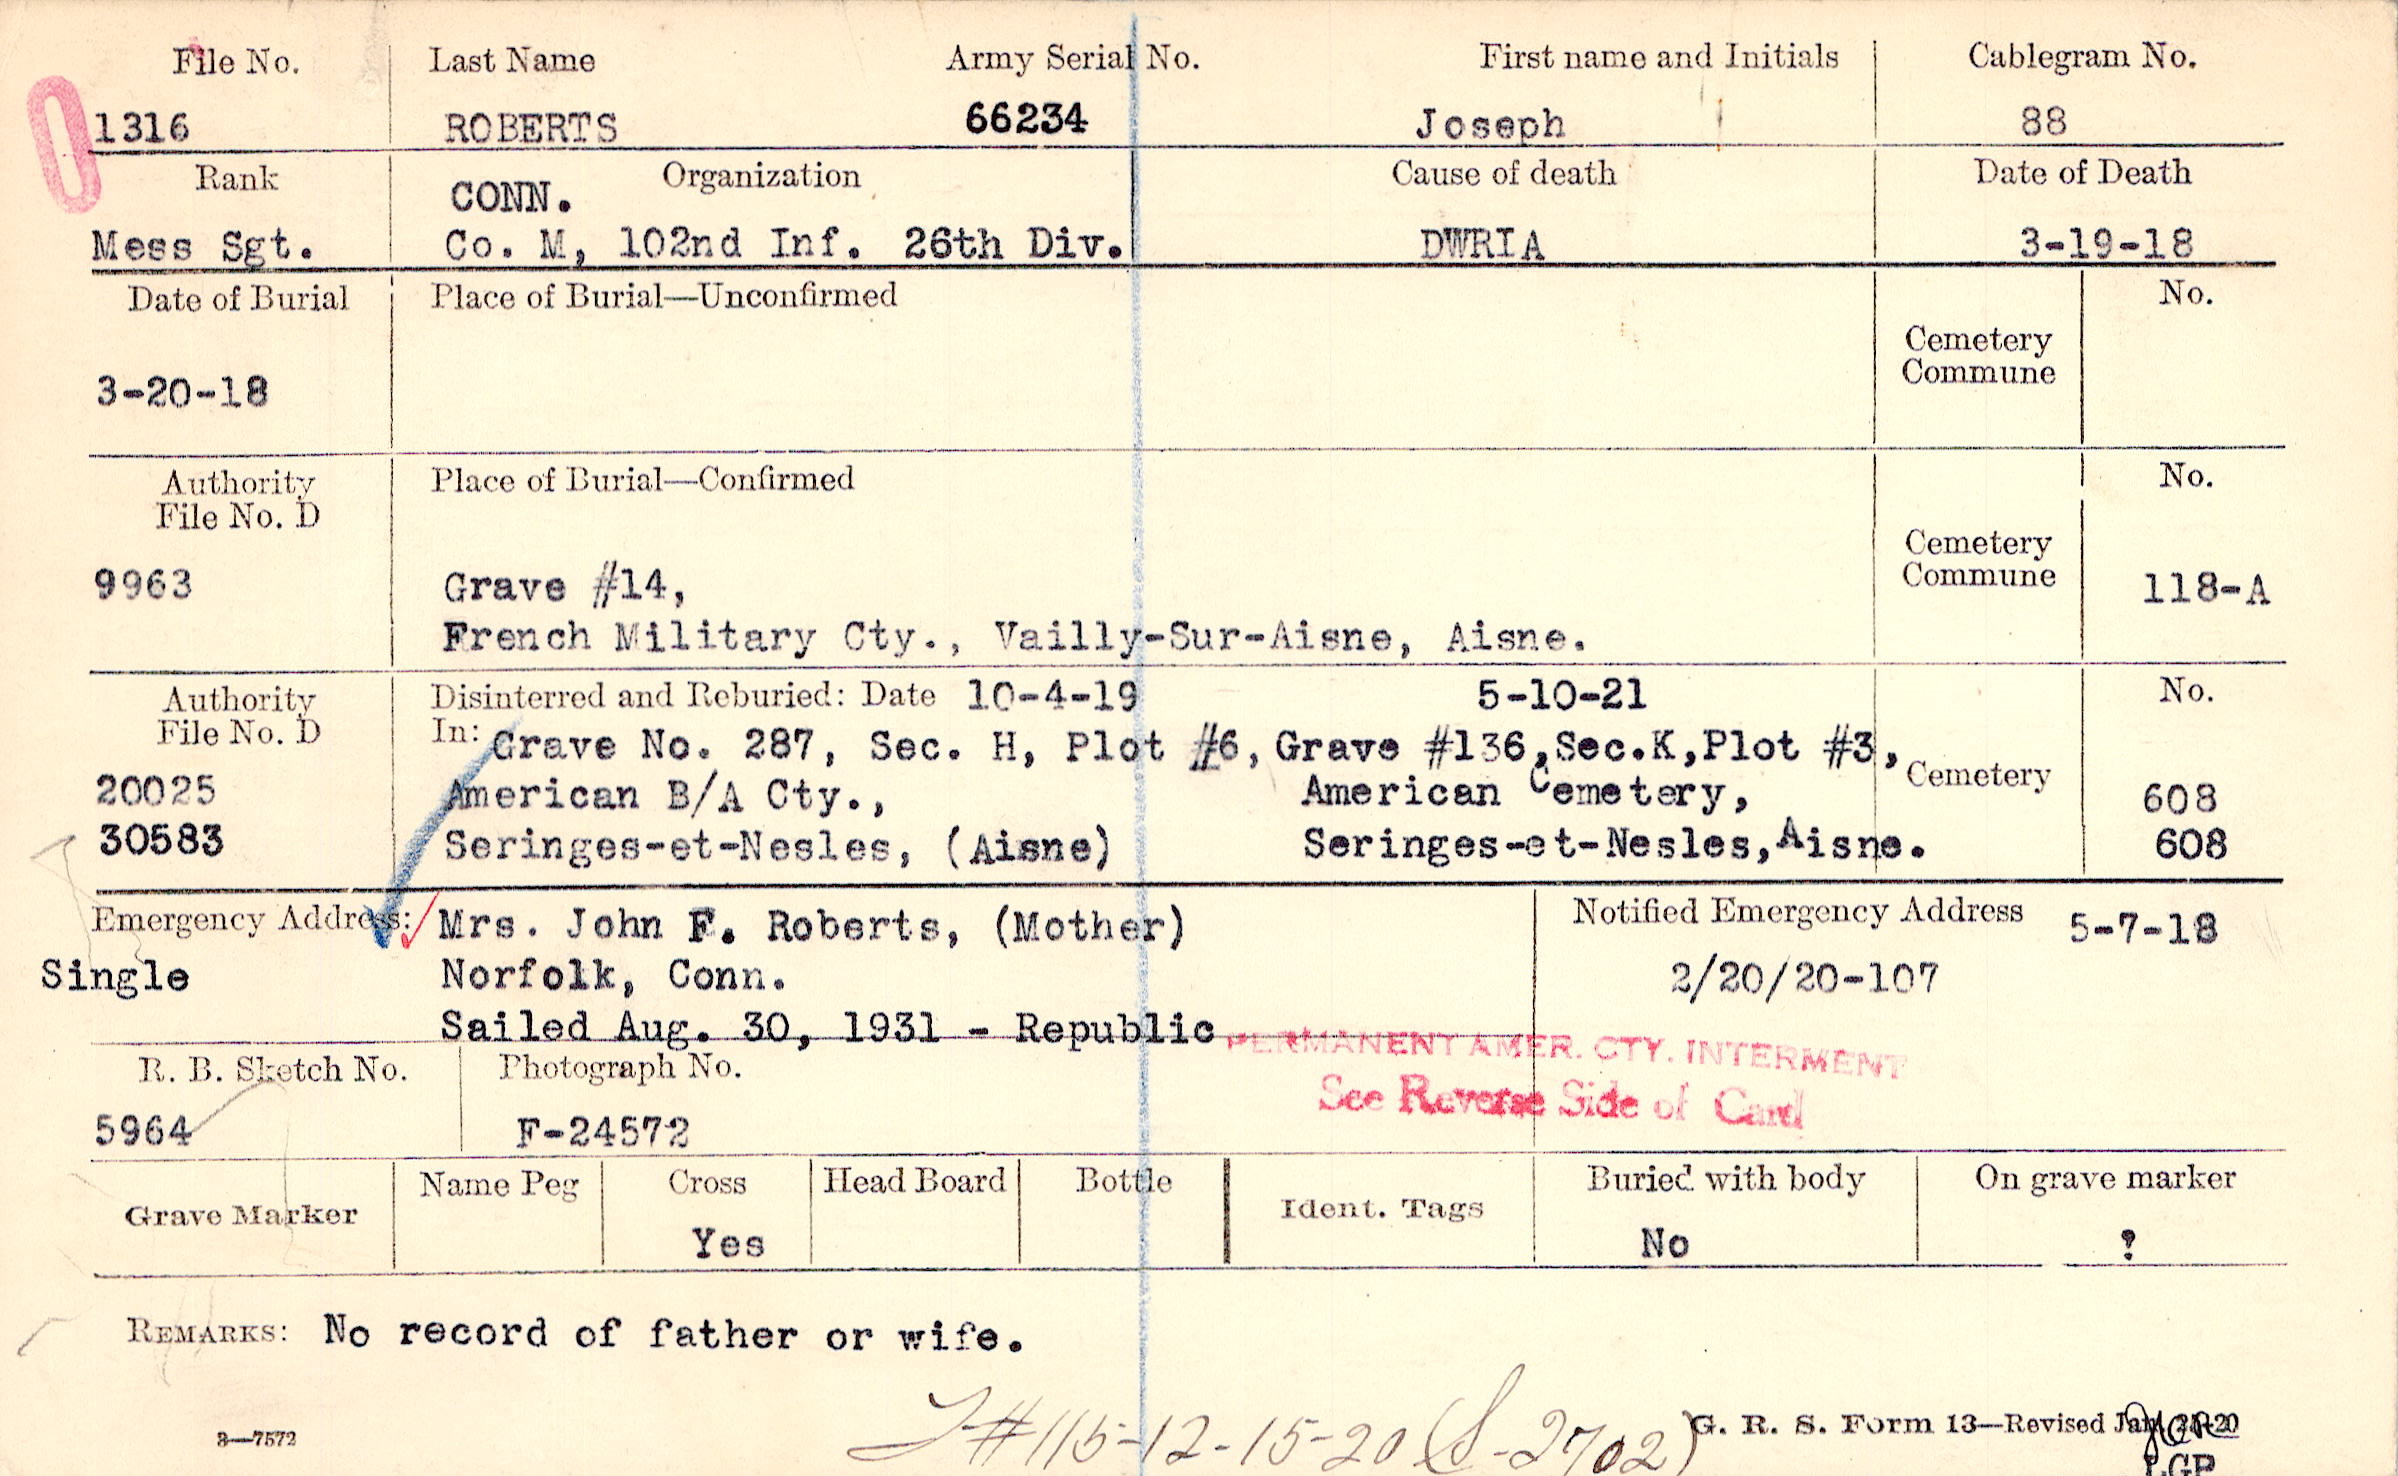 File No. Last Name Army Serial No. First name and Initials Cablegram No.
1316 ROBERTS 66234 Joseph 88
Rank Organization Cause of death Date of Death
CONN.
Mess Sgt. Co. M, 102nd Inf. 26th Div. DWRIA 3-19-18
Date of Burial Place of Burial—Unconfirmed No.
Cemetery
Commune
3-20-18
Authority Place of Burial—Confirmed No.
File No. D
Cemetery
Commune
9963 Grave #14, 118-A
French Military Cty., Vailly-Sur-Aisne, Aisne.
Authority Disinterred and Reburied: Date 10-4-19 5-10-21 No.
File No. D In: Grave No. 287, Sec. H, Plot #6, Grave #136,Sec.K,Plot #3,
Cemetery
20025 American B/A Cty., American Cemetery, 608
30583 Seringes-et-Nesles, (Aisne) Seringes-et-Nesles,Aisne. 608
Emergency Address: Mrs. John F. Roberts, (Mother) Notified Emergency Address 5-7-18
Single Norfolk, Conn. 2/20/20-107
Sailed Aug. 30, 1931 - Republic
PERMANENT AMER. CTY. INTERMENT
See Reverse Side of Card
R. B. Sketch No. Photograph No.
5964 F-24572
Grave Marker Name Peg Cross Head Board Bottle Ident. Tags Buried with body On grave marker
Yes No ?
REMARKS: No record of father or wife.
#115-12-15-20 (S-2702)
3—7572 G. R. S. Form 13—Revised Jan.
LGP